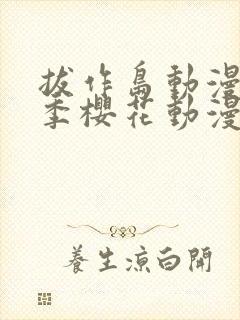 拔作島動漫
季櫻花動漫
養生涼白開